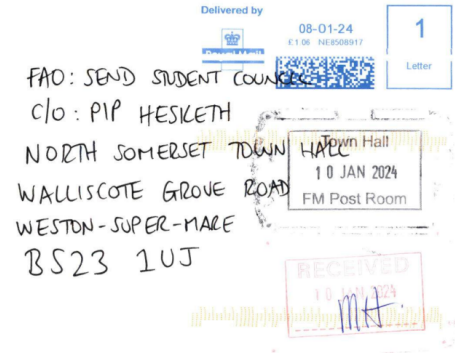 Delivered by
Royal Mail
08-01-24
£1.06 NE8508917
1
Letter
FAO: SEND STUDENT COUNCIL
C/O: PIP HESKETH
NORTH SOMERSET TOWN HALL
WALLISCOTE GROVE ROAD
WESTON-SUPER-MARE
BS23 1UJ
Town Hall
10 JAN 2024
FM Post Room
RECEIVED
10 JAN 2024